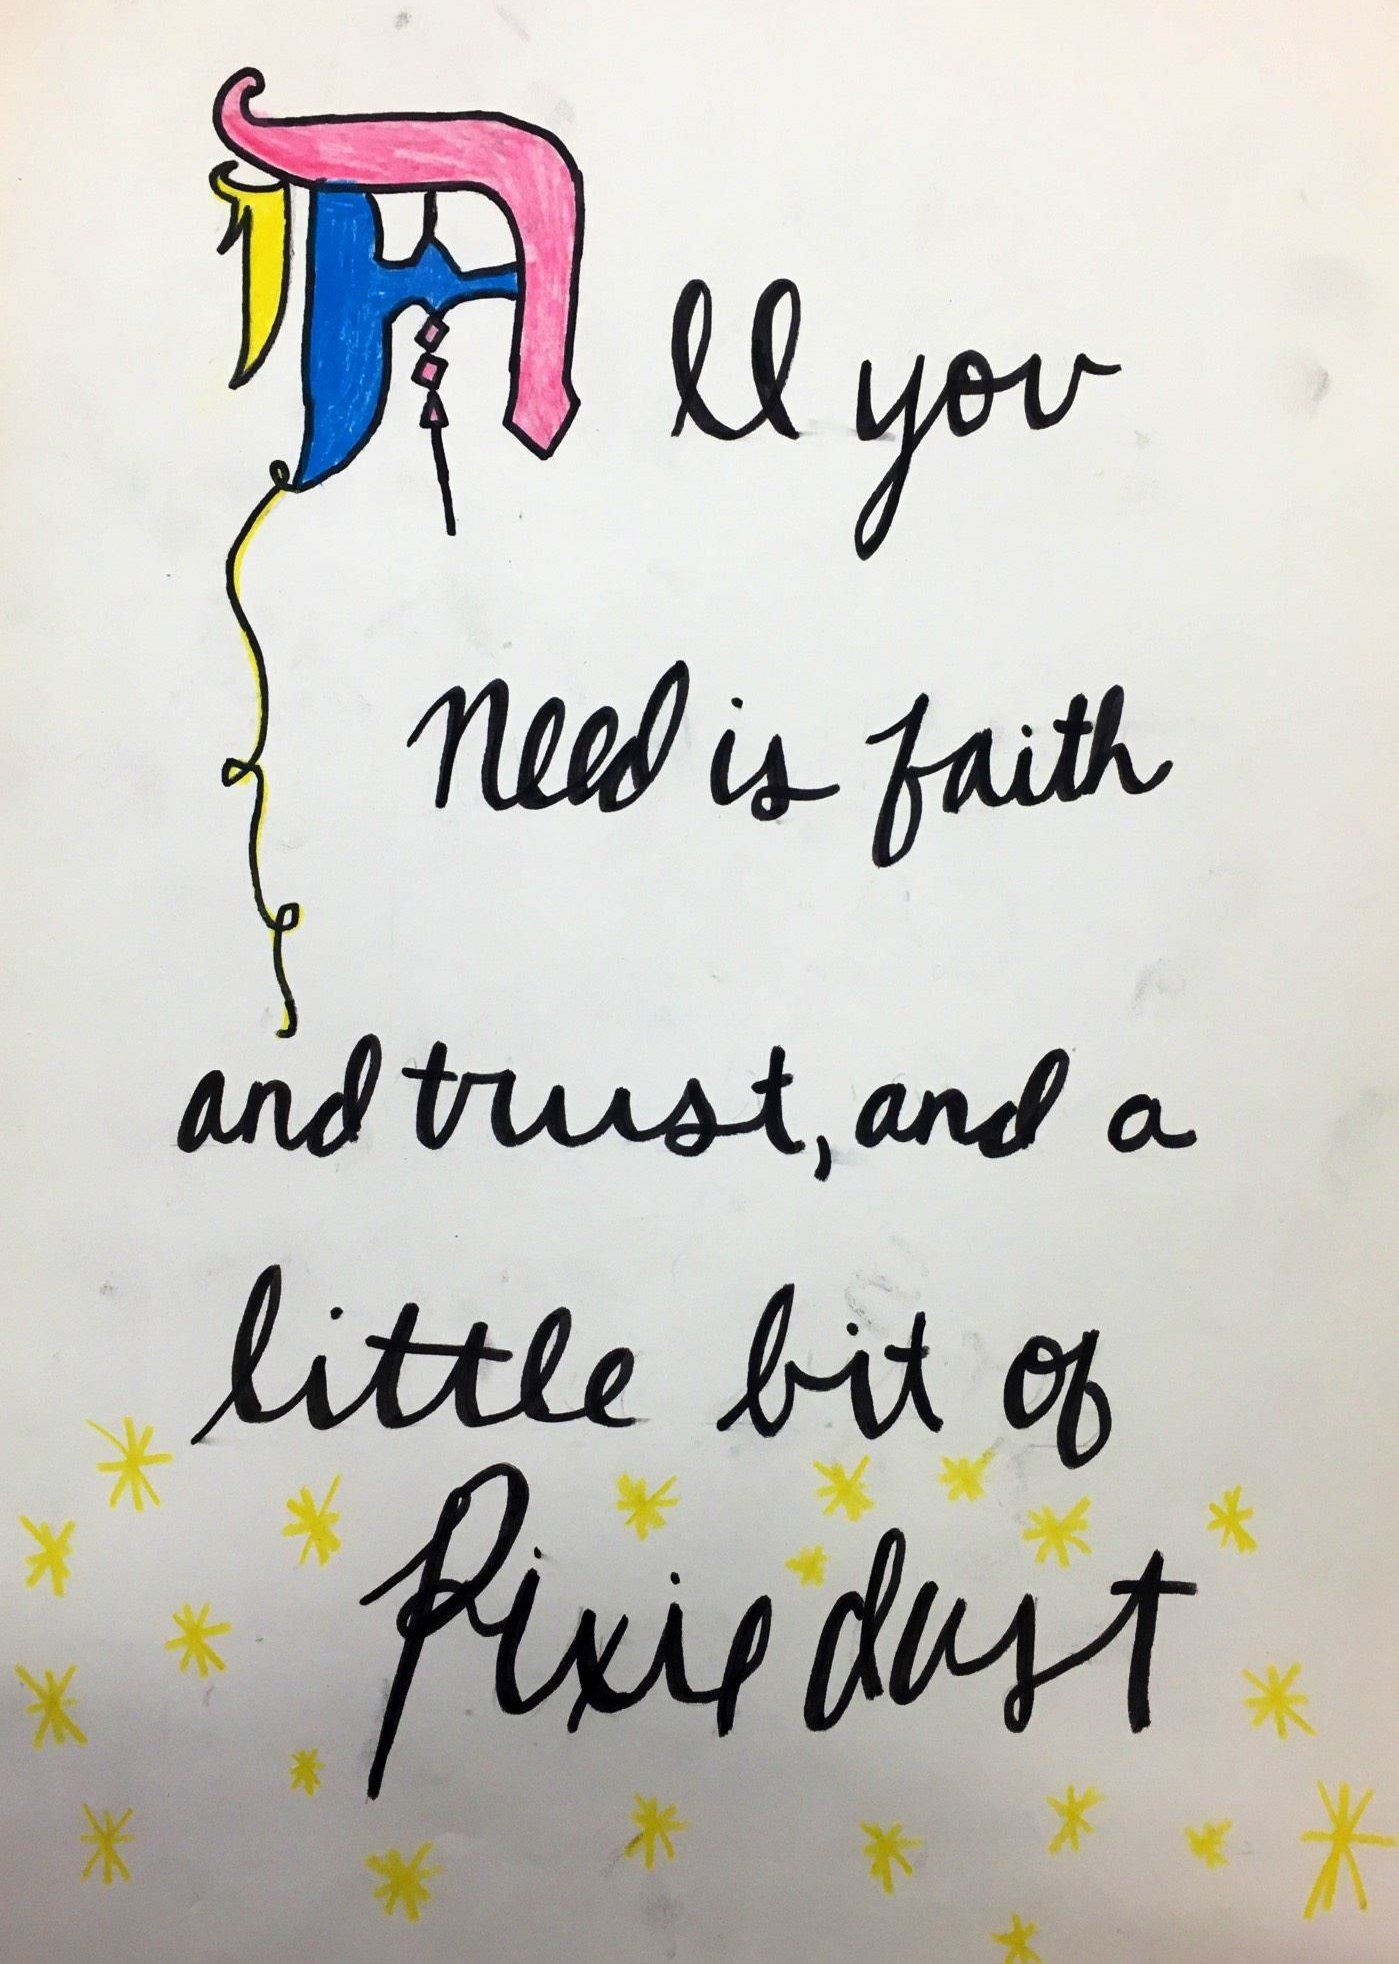 All you
Need is faith
and trust, and a
little bit of
Pixie dust